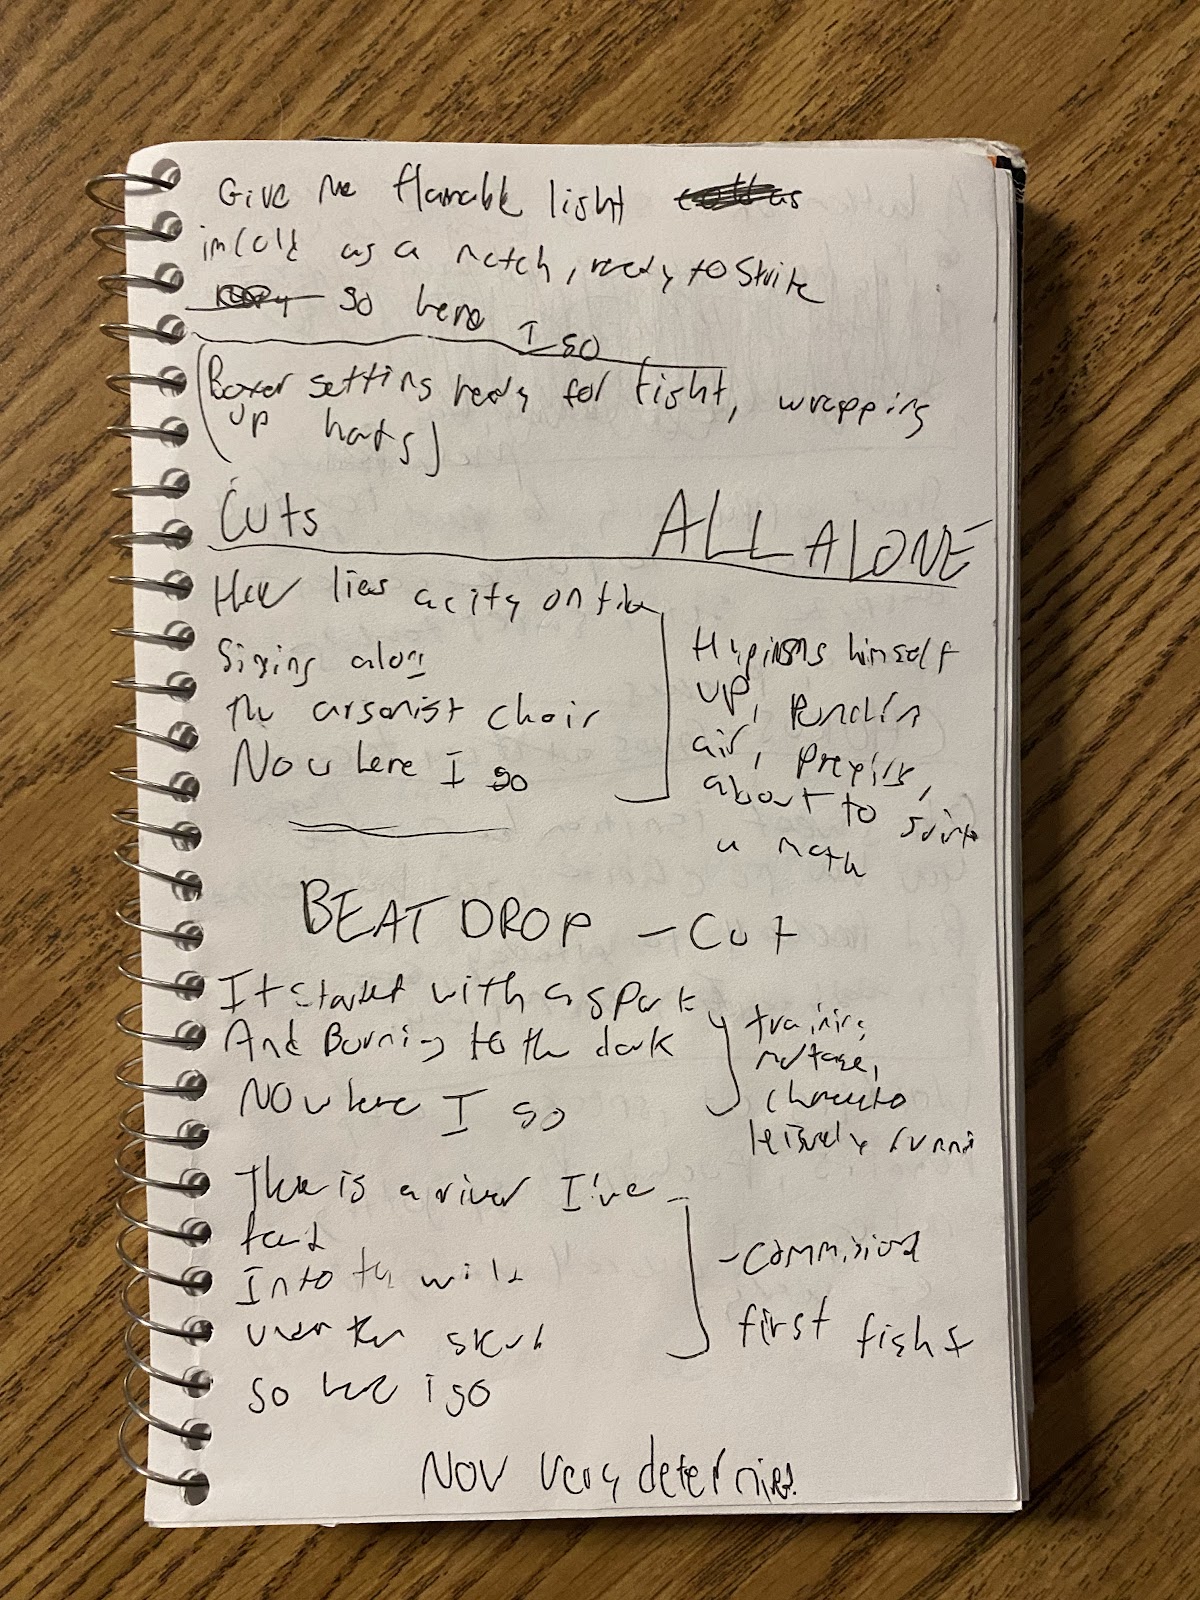 Give me flamable light
im cold as a match, ready to strike
so here I go
(Boxer getting ready for fight, wrapping
up hands)
Cuts
ALL ALONE
Here lies a city on fire
Singing along
the arsonist choir
Now here I go
himself
up, punchin
air,
about to
a match
BEAT DROP - Cut
It started with a spark
And Burning to the dark
Now here I go
training
montage,
There is a river I've
Into the wild
under the
so here I go
first fight
Now very determined